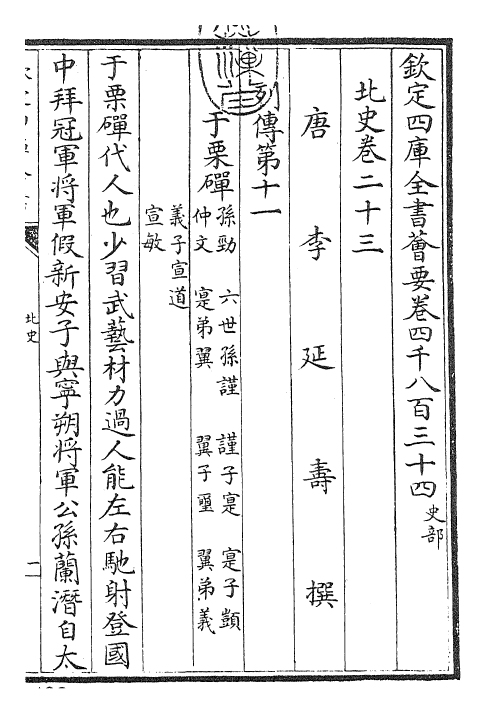 欽定四庫全書薈要卷四千八百三十四 史部
北史卷二十三
唐 李 延 壽 撰
列傳第十一
于栗磾 孫勁 六世孫謹 謹子寔 寔子顗
仲文 寔弟翼 翼子璽 翼弟義
義子宣道
宣敏
于栗磾代人也少習武藝材力過人能左右馳射登國
中拜冠軍將軍假新安子與寧朔將軍公孫蘭潛自太
北史
二